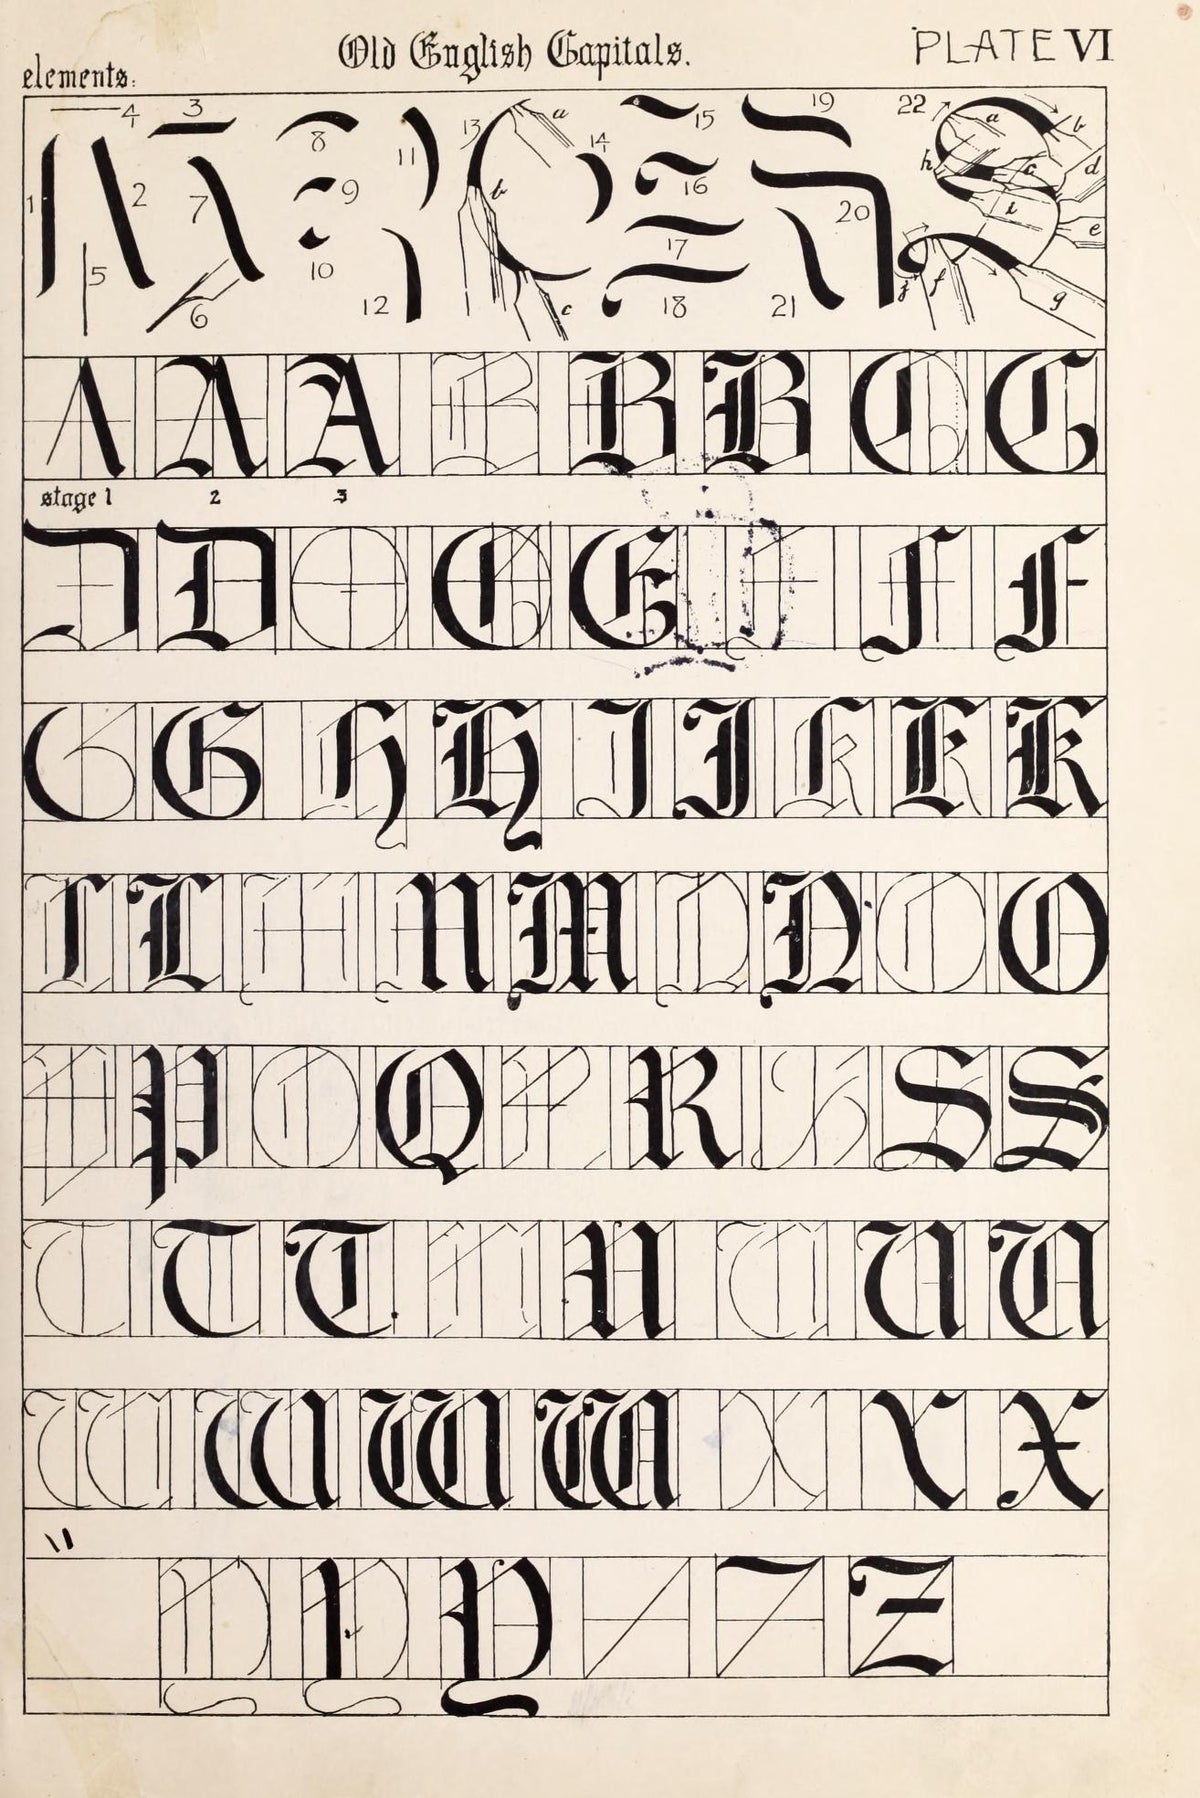 Old English Capitals.
PLATE VI
elements:
1 2 3 4 5 6 7 8 9 10 11 12 13 a b c 14 15 16 17 18 19 20 21 22 a b c d e f g h i j
A A A B B B C C
stage 1 2 3
D D E E F F F
G G H H I I K K K
L L M M M N N O O
P P Q Q R R S S S
T T T U U U U U
W W W W X X X
Y Y Y Z Z Z